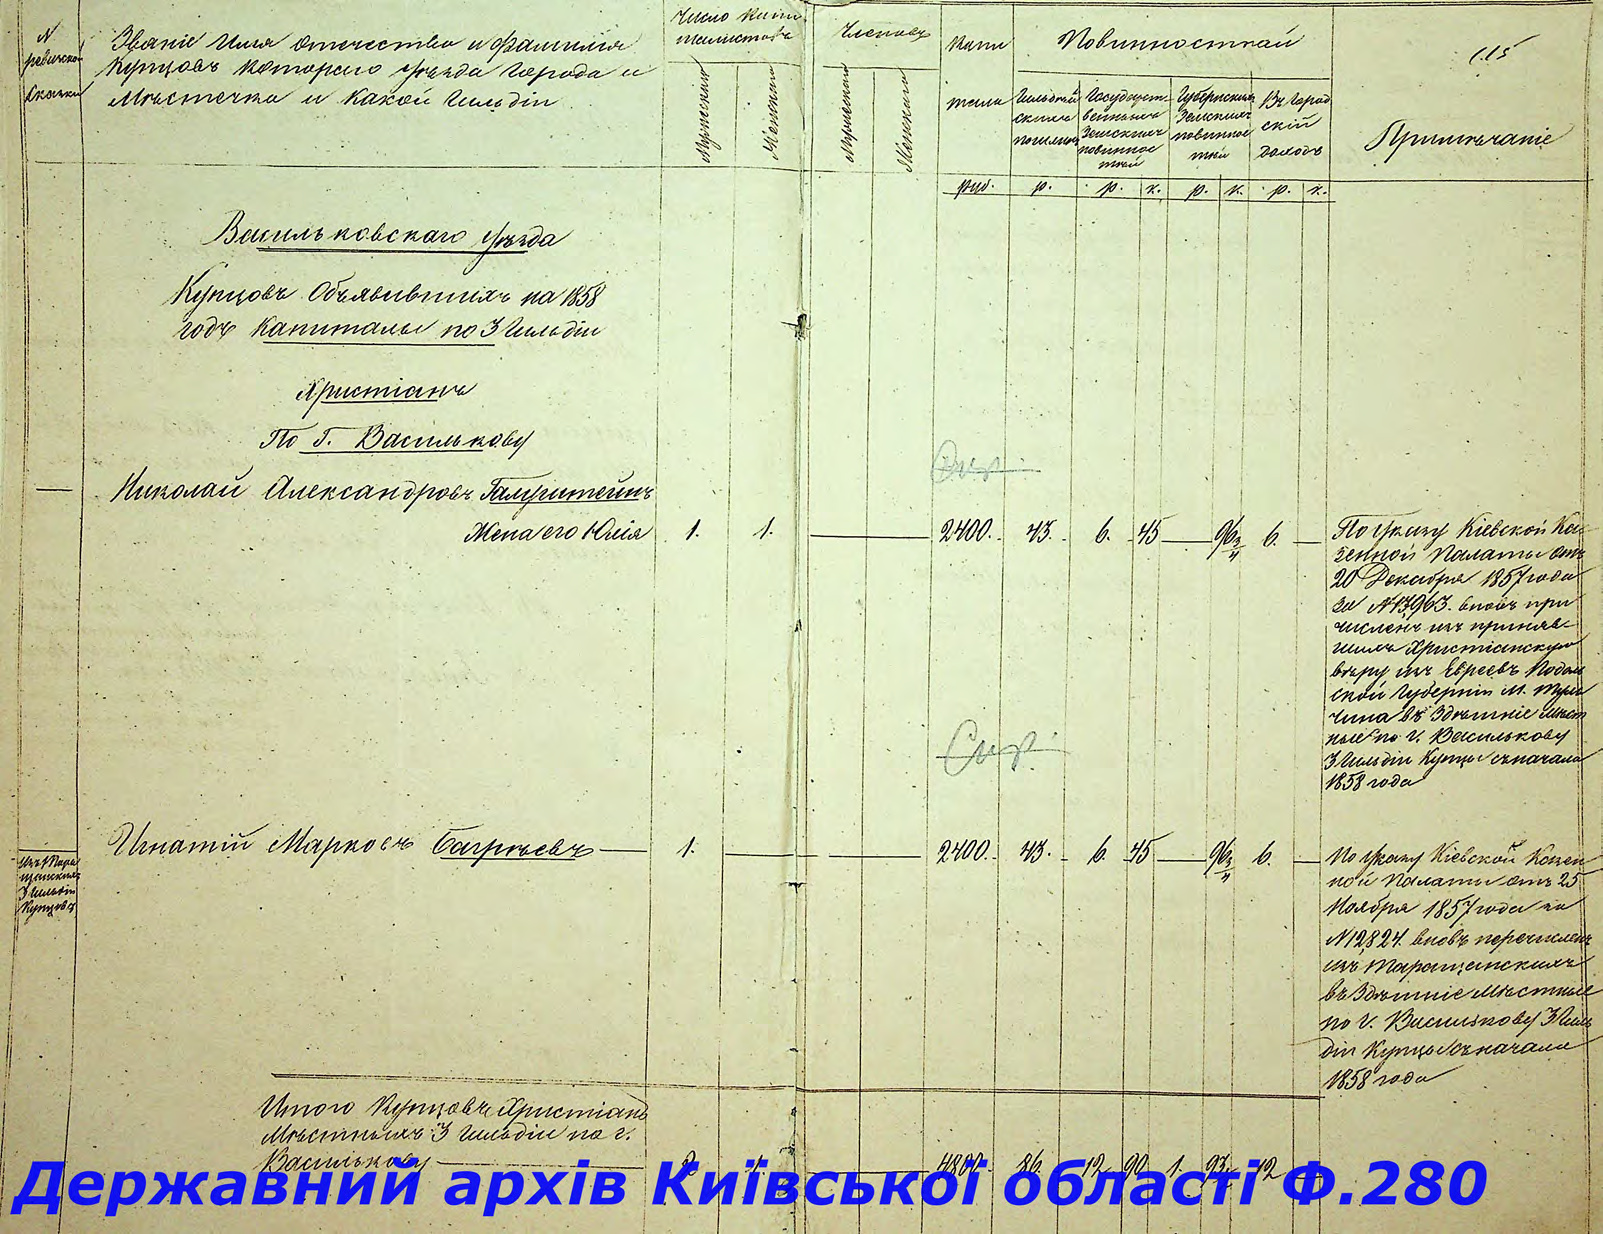 N
ревизской
сказки
Званіе Имя отечество и фамилія
Купцовъ которого уѣзда города и
Мѣстечка и какой Гильдіи
Число капи
талистовъ
Мужескаго
Женскаго
Членовъ
Мужескаго
Женскаго
Капи
талы
Повинностей
Гильдей
скихъ
пошлинъ
Государст
венныхъ
Земскихъ
повинно
стей
Губернскихъ
Земскихъ
повинно
стей
Въ город
скій
доходъ
115
Примѣчаніе
руб. р. р. к. р. к. р. к.
Васильковскаго уѣзда
Купцовъ Объявившихъ на 1858
годъ Капиталы по 3 Гильдіи
Христіанъ
По Г. Василькову
Николай Александровъ Галуштейнъ
Жена его Юлія 1. 1. 2400. 43. 6. 45 6.
По Указу Кіевской Ка-
зенной Палаты отъ
20 Декабря 1857 года
за N13,963. вновь при
численъ изъ приняв-
шихъ Христіанскую
вѣру изъ Евреевъ Подоль
ской Губерніи М. Туль
чина въ Здѣшніе Мѣст
ные по г. Василькову
3 Гильдіи Купцы съ начала
1858 года
Изъ Тара
щанскихъ
3 Гильдіи
Купцовъ
Игнатій Марковъ Багрѣевъ 1. 2400. 43. 6. 45 6.
По Указу Кіевской Казен
ной Палаты отъ 25
Ноября 1857 года за
N12,824. вновь перечисленъ
изъ Таращанскихъ
въ Здѣшніе Мѣстные
по г. Василькову 3 Гиль
діи Купцы съ начала
1858 года
Итого Купцовъ Христіанъ
Мѣстныхъ 3 Гильдіи по г.
Василькову 2. 1. 4800. 86. 12 90 1. 12
Державний архів Київської області Ф.280